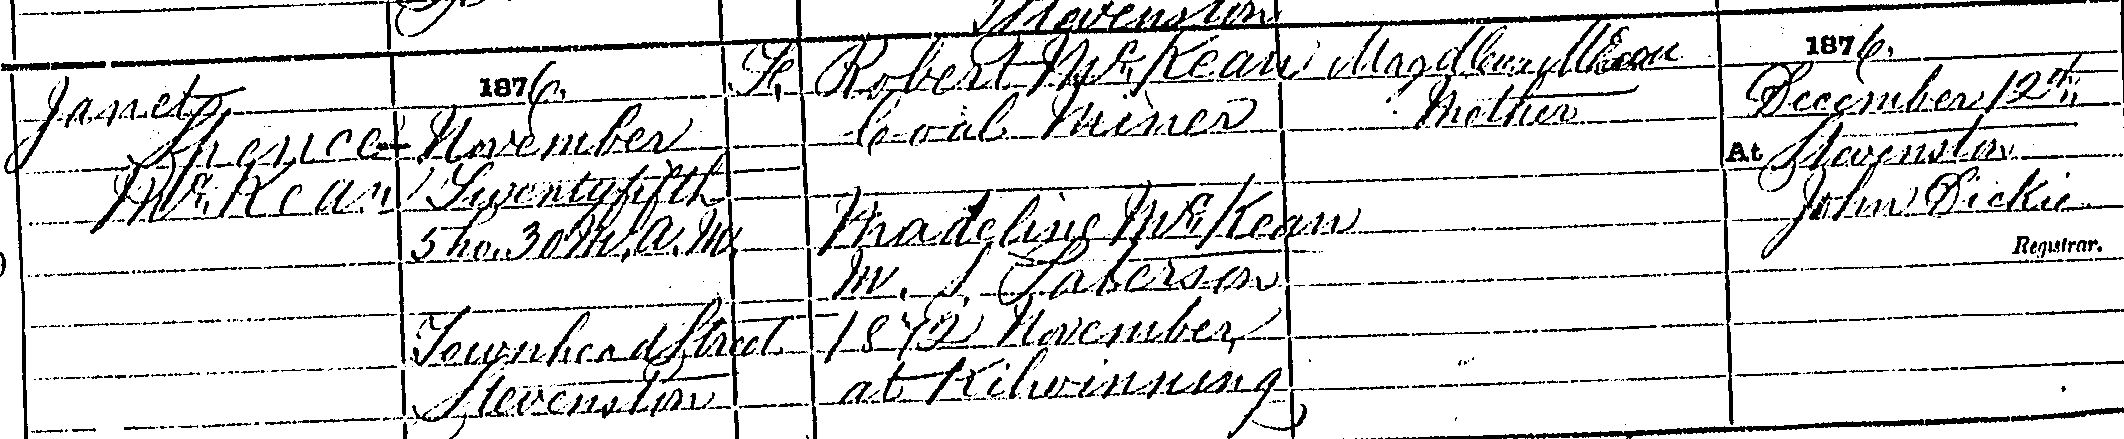 Stevenston
Janet
Spence
McKean
1876.
November
Twentyfifth
5 ho. 30 M. A. M.
Townhead Street
Stevenston
F.
Robert McKean
Coal Miner
Madeline McKean
M. S. Paterson
1872 November,
at Kilwinning
McKean
Mother
1876.
December 12th
At Stevenston
John Dickie
Registrar.